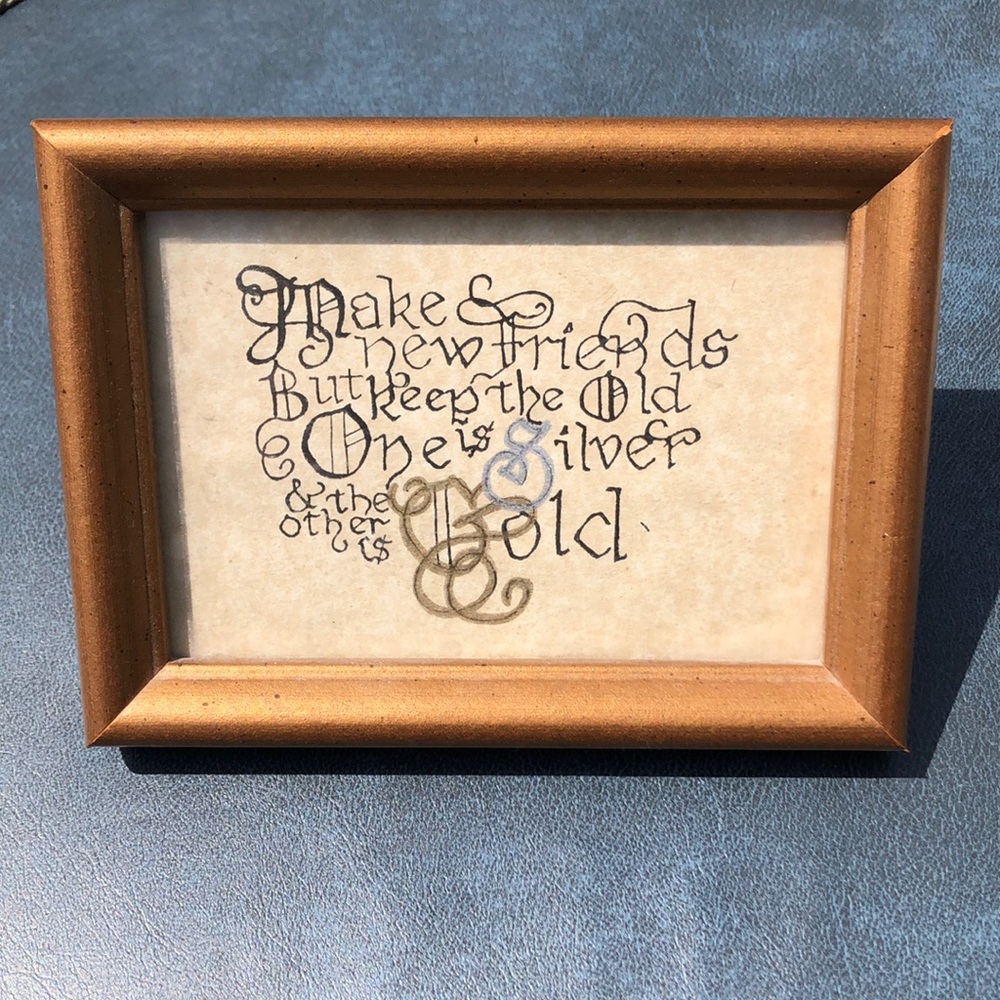 Make
new friends
But keep the Old
One is Silver
& the
other
is Gold